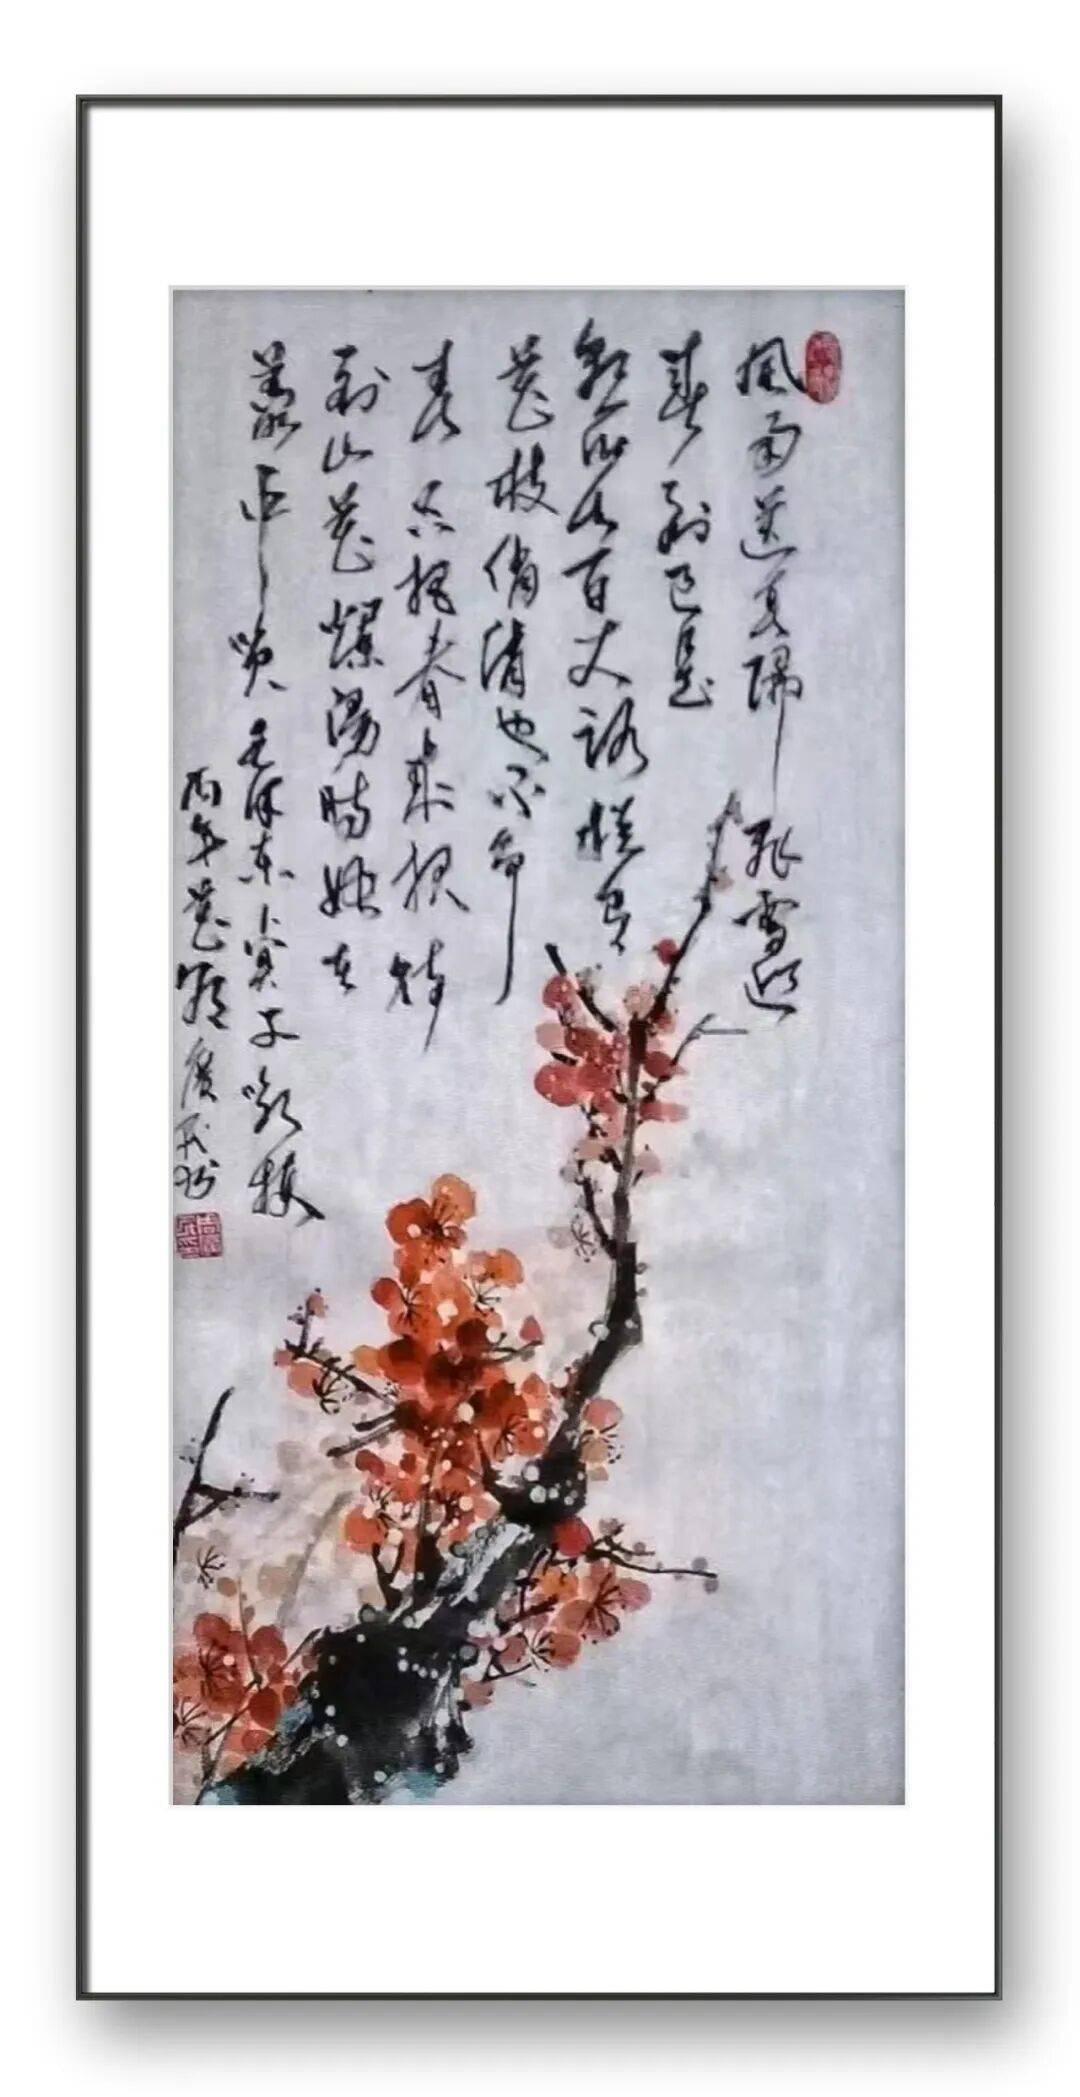 風雨送春歸飛雪迎
春到已是
懸崖百丈冰猶有
花枝俏俏也不争
春只把春来报待
到山花爛漫時她在
叢中笑毛泽东卜算子咏梅